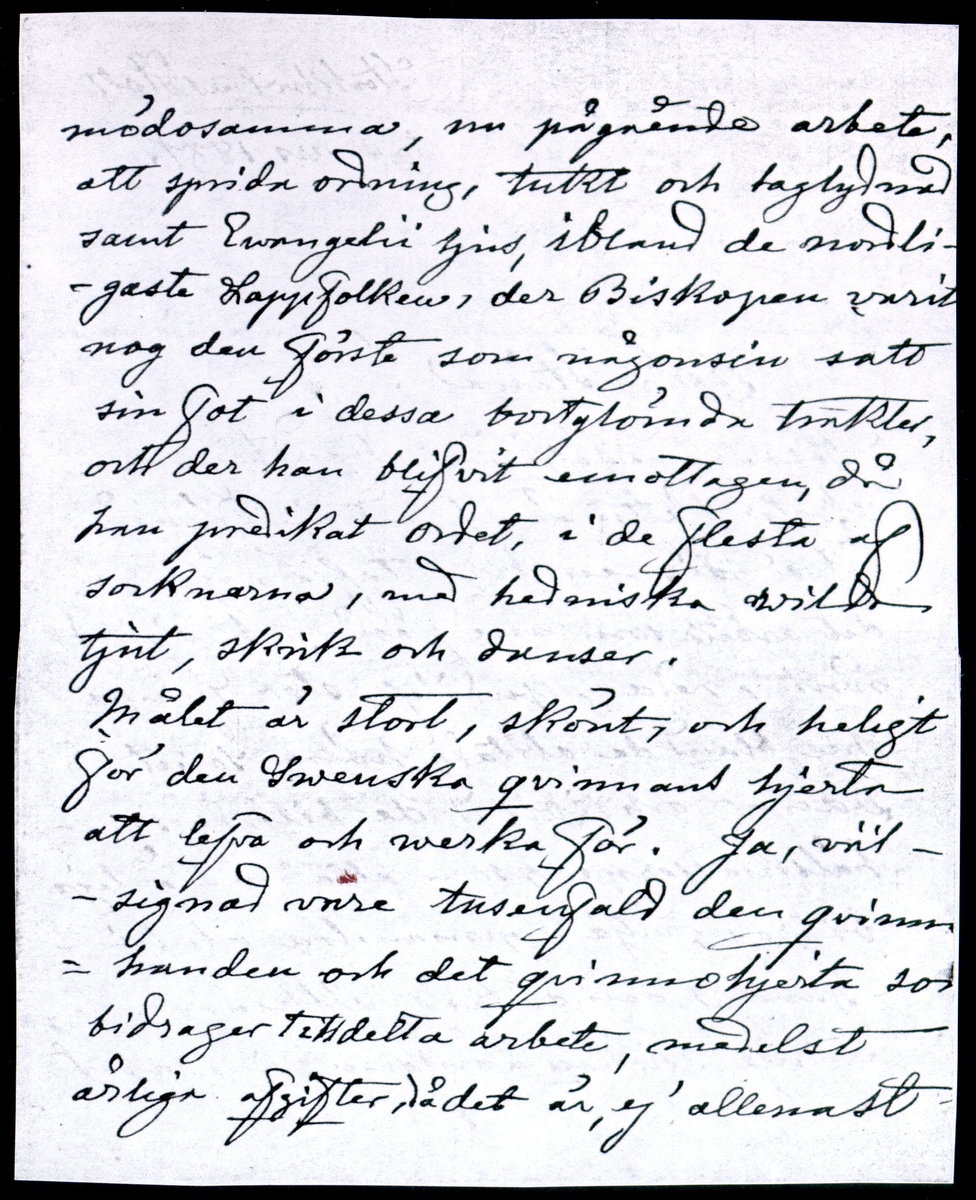 mödosamma, nu pågående arbete,
att sprida ordning, tukt och laglydnad
samt Ewangelii ljus, ibland de nordli-
-gaste Lappfolken, der Biskopen varit
nog den förste som någonsin satt
sin fot i dessa bortglömda trakter,
och der han blifvit emottagen, då
han predikat ordet, i de flesta af
socknarna, med hedniska wilda
tjut, skrik och danser.
Målet är stort, skönt, och heligt
för den Swenska qvinnans hjerta
att lefva och werka för. Ja, väl-
-signad vare tusenfald den qvinn
=handen och det qvinnohjerta som
bidrager till detta arbete, medelst
årliga afgifter, då det är, ej allenast